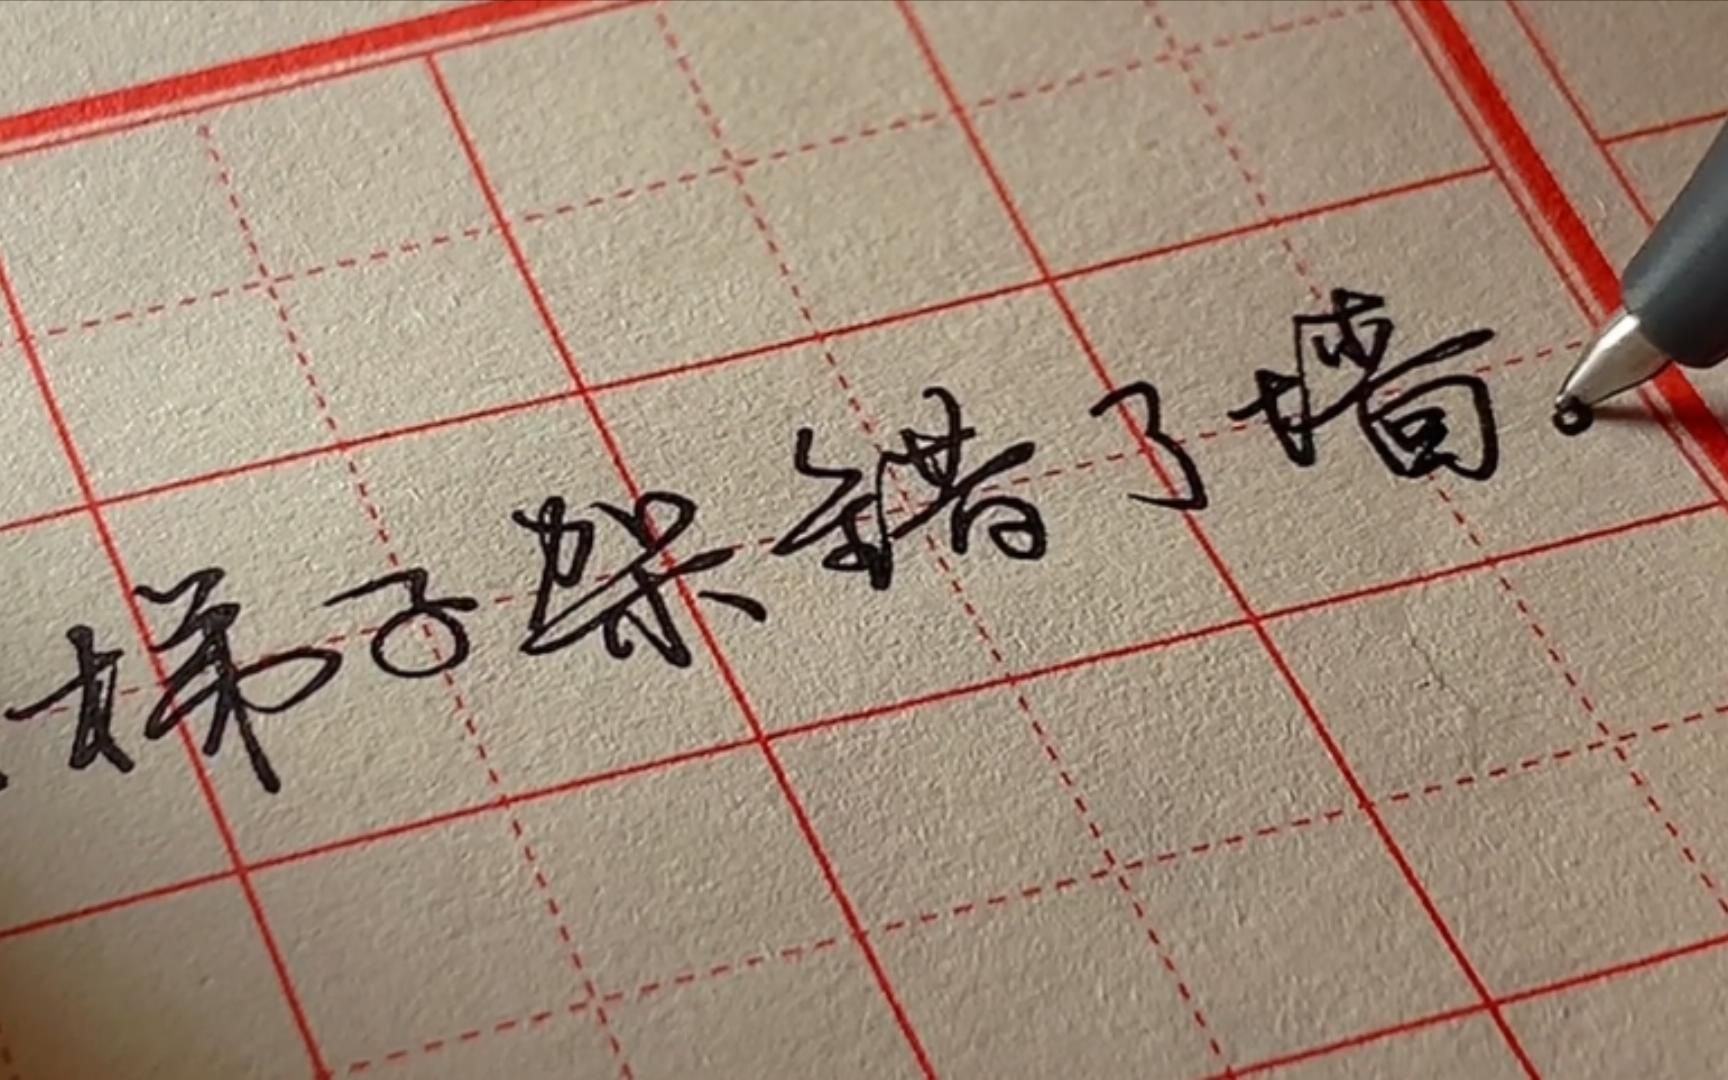 梯子架错了墙。